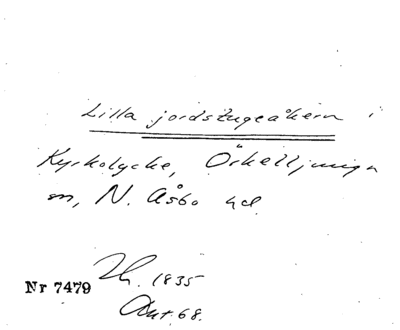 Lilla jordstugeåkern i
Kyrkolycke, Örkelljunga
sn, N. Åsbo hd
Lh. 1835
Nr 7479
Akt. 68.